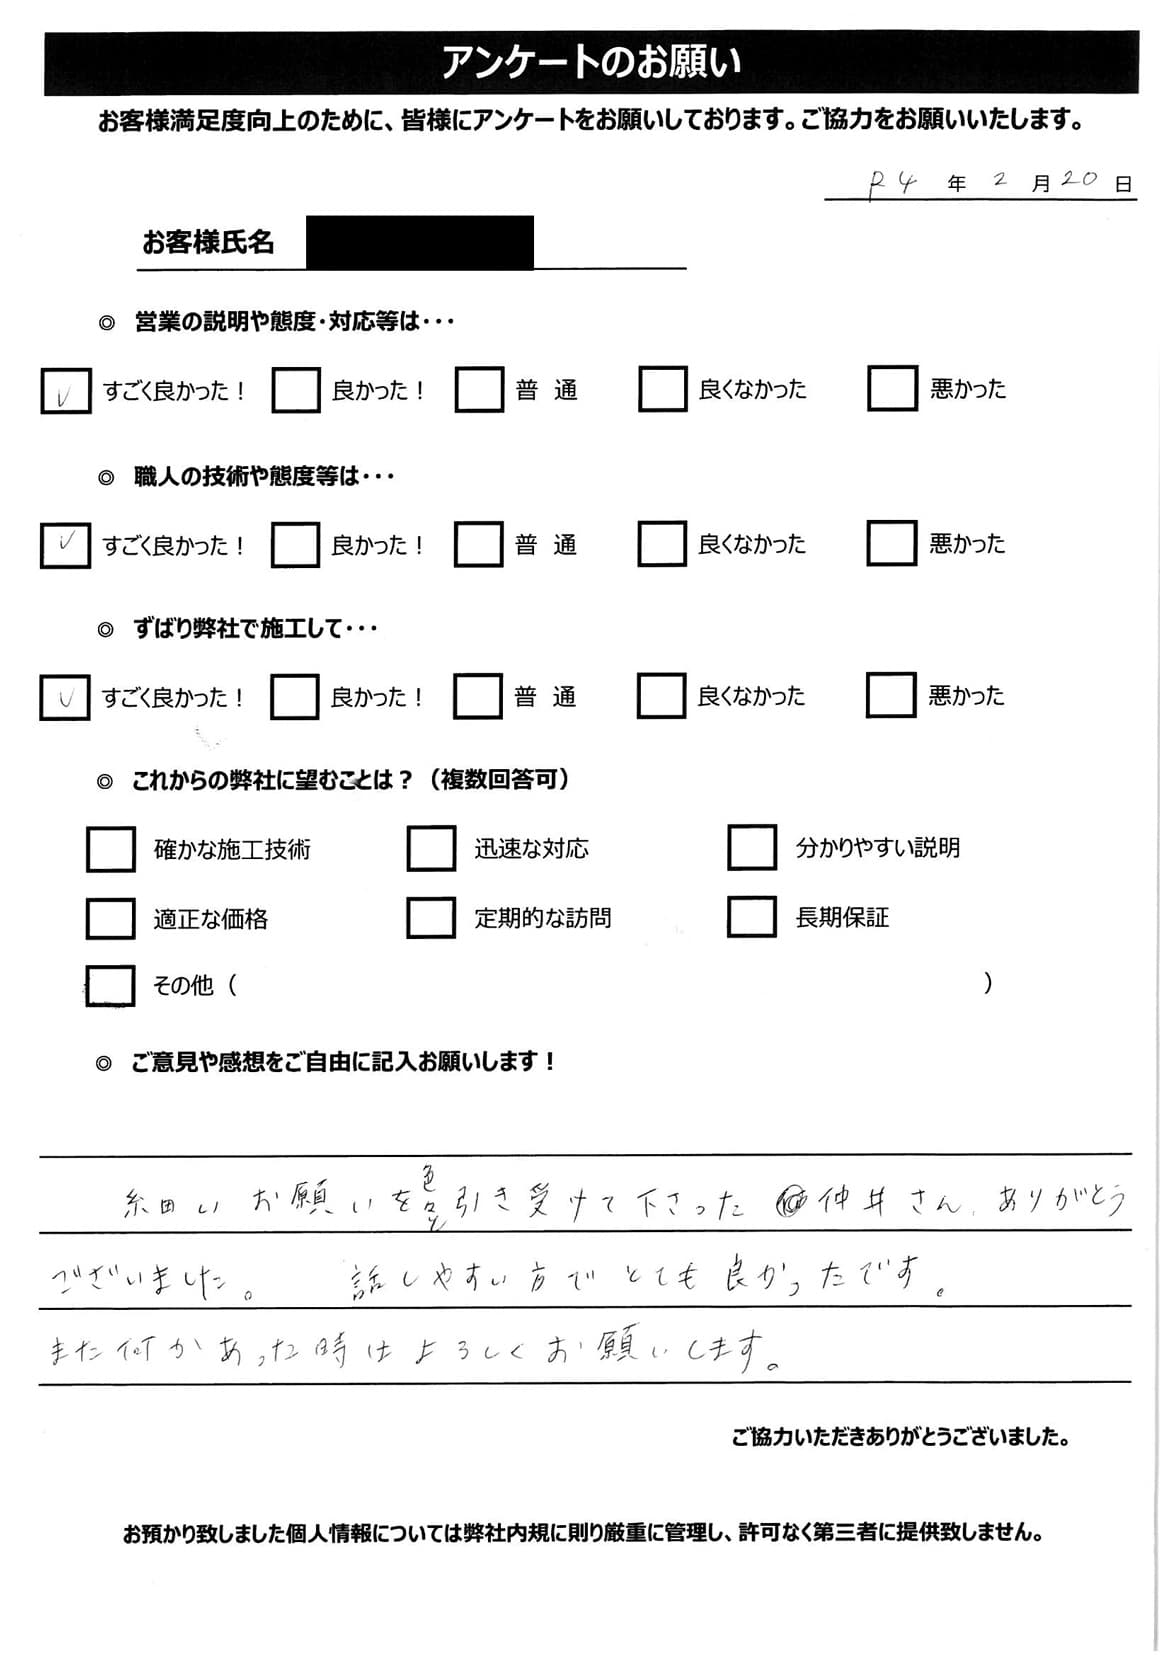 アンケートのお願い
お客様満足度向上のために、皆様にアンケートをお願いしております。ご協力をお願いいたします。
R4 年 2 月 20 日
お客様氏名
◎ 営業の説明や態度・対応等は・・・
✓ すごく良かった！ 良かった！ 普 通 良くなかった 悪かった
◎ 職人の技術や態度等は・・・
✓ すごく良かった！ 良かった！ 普 通 良くなかった 悪かった
◎ ずばり弊社で施工して・・・
✓ すごく良かった！ 良かった！ 普 通 良くなかった 悪かった
◎ これからの弊社に望むことは？（複数回答可）
確かな施工技術 迅速な対応 分かりやすい説明
適正な価格 定期的な訪問 長期保証
その他（ ）
◎ ご意見や感想をご自由に記入お願いします！
細いお願いを色々と引き受けて下さった 仲井さん、ありがとう
ございました。 話しやすい方でとても良かったです。
また何かあった時はよろしくお願いします。
ご協力いただきありがとうございました。
お預かり致しました個人情報については弊社内規に則り厳重に管理し、許可なく第三者に提供致しません。